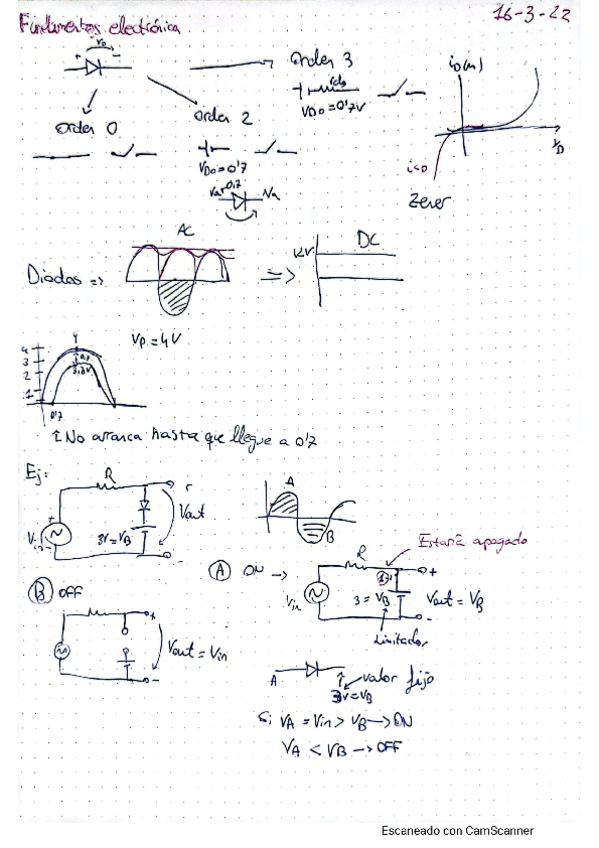 Fundamentos electrónica
16-3-22
VD
+ -
Orden 3
VDo = 0'7V
Orden 0
Orden 2
VDo = 0'7
iD(m)
VD
Zener
0.7
Na
AC
Diodos =>
=>
DC
Vp = 4V
4
3
2
1
4
0'7
↑ No arranca hasta que llegue a 0'7
Ej:
R
+
Vin
3V = VB
Vout
A
B
Estará apagado
Ⓐ ON →
R
Vin
3 = VB
+
-
Vout = VB
Limitador
Ⓑ OFF
+
-
Vout = Vin
A
valor fijo
3V = VB
Si VA = Vin > VB → ON
VA < VB → OFF
Escaneado con CamScanner